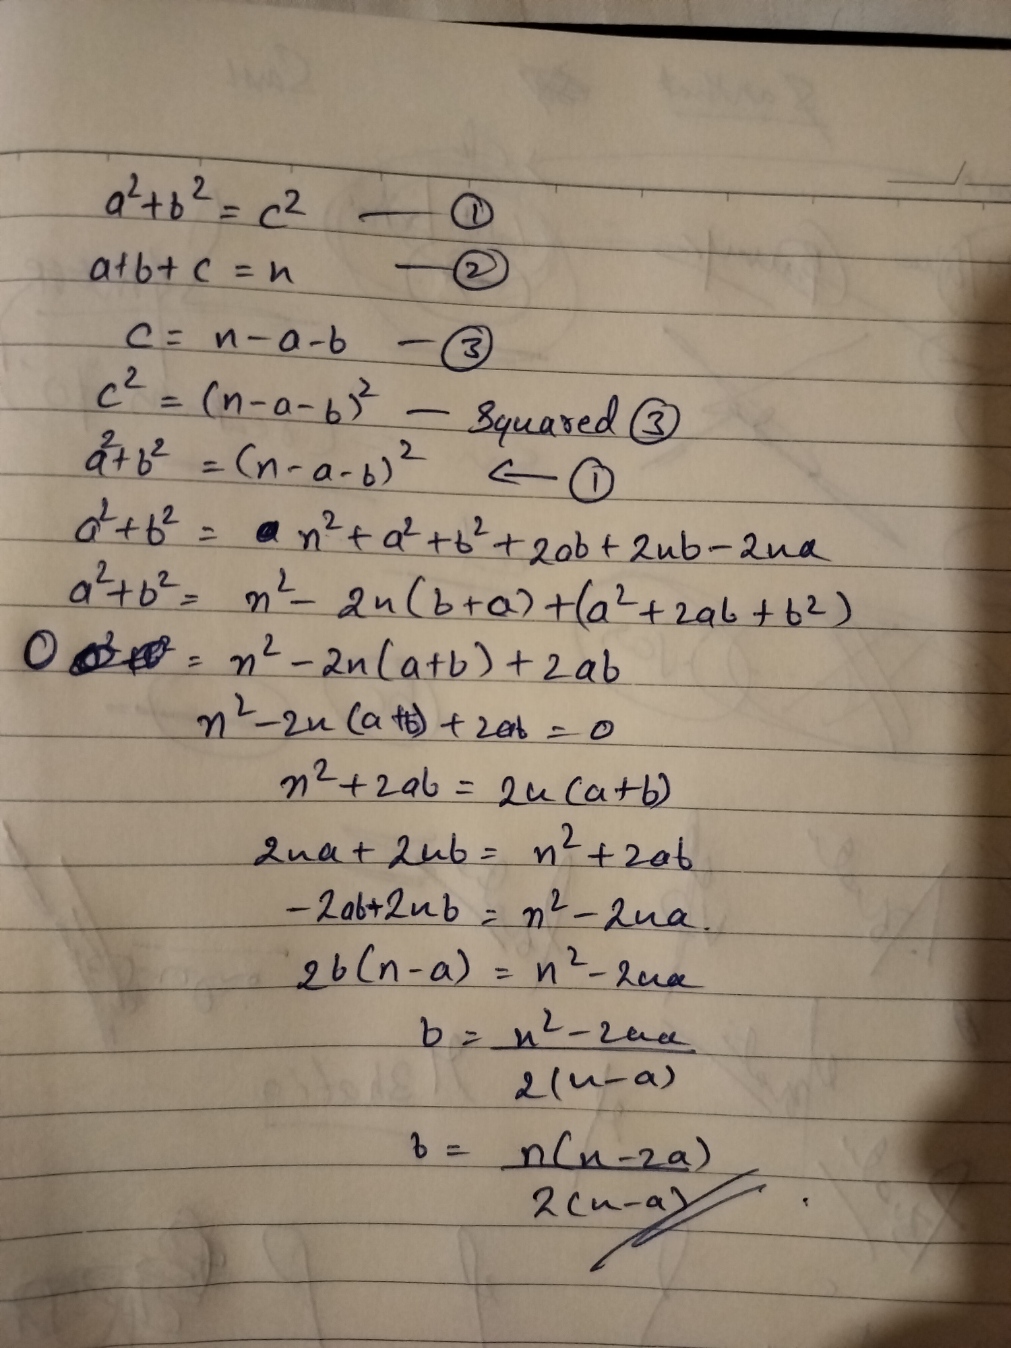 a²+b² = c² — ①
a+b+c = n — ②
c = n-a-b — ③
c² = (n-a-b)² — Squared ③
a²+b² = (n-a-b)² ← ①
a²+b² = n²+a²+b²+2ab+2nb-2na
a²+b² = n²-2n(b+a)+(a²+2ab+b²)
0 = n²-2n(a+b)+2ab
n²-2n(a+b)+2ab = 0
n²+2ab = 2n(a+b)
2na+2nb = n²+2ab
-2ab+2nb = n²-2na.
2b(n-a) = n²-2na
b = n²-2na
2(n-a)
b = n(n-2a)
2(n-a)